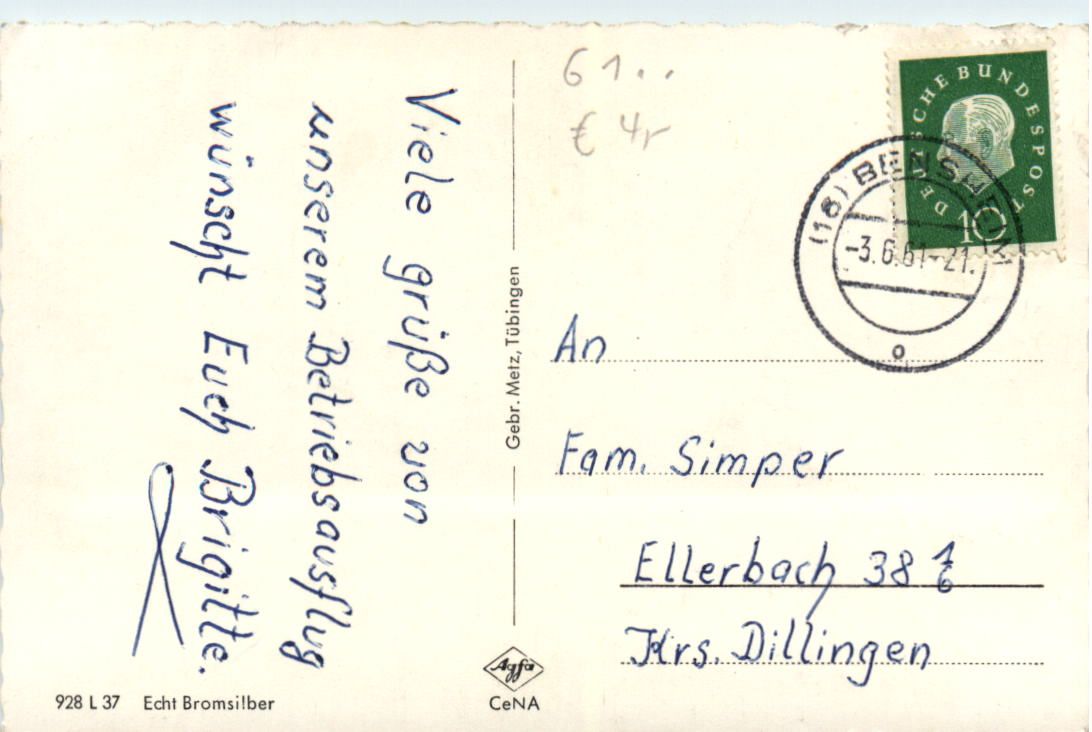 Viele grüße von
unserem Betriebsausflug
wünscht Euch Brigitte.
928 L 37 Echt Bromsilber
Gebr. Metz, Tübingen
Agfa
CeNA
61..
€ 4,-
DEUTSCHE BUNDESPOST
10
(16) BENSHEIM
-3.6.61-21.
o
An
Fam. Simper
Ellerbach 38 1/6
Krs. Dillingen